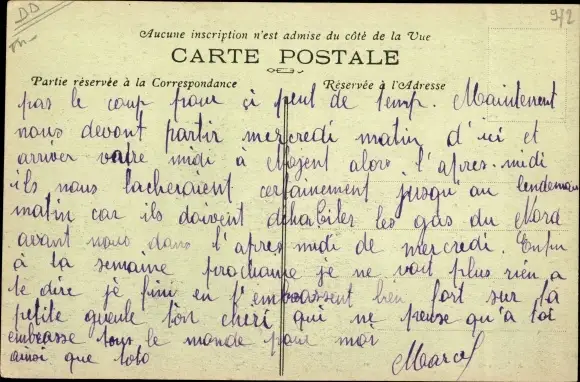 DD
9/2
Aucune inscription n'est admise du côté de la Vue
CARTE POSTALE
Partie réservée à la Correspondance
Réservée à l'Adresse
pas le coup pour si peut de temp. Maintenent
nous devont partir mercredi matin d'ici et
arriver vatre midi à Nogent alors l'apres-midi
ils nous lacheraient certainement jusqu'au lendemain
matin car ils doivent déhabiler les gas du Nord
avant nous dans l'apres midi de mercredi. Enfin
à la semaine prochaine je ne voit plus rien a
te dire je fini en t'embrassent bien fort sur ta
petite gueule ton cheri qui ne pense qu'à toi
embrasse tous le monde pour moi
ainsi que toto
Marcel